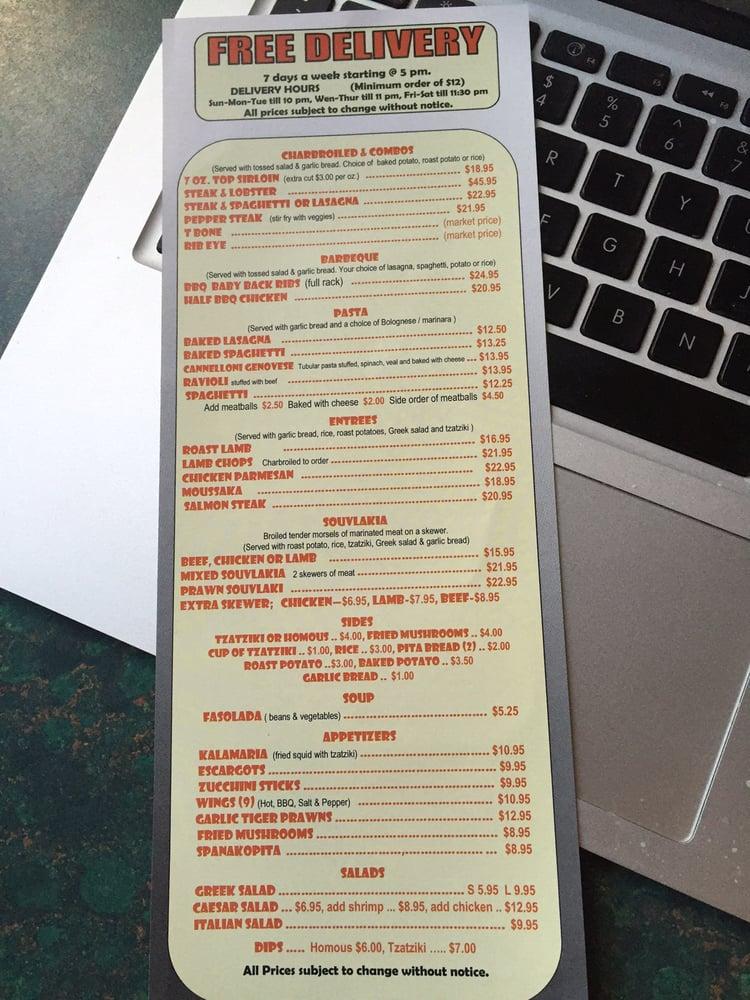 FREE DELIVERY
7 days a week starting @ 5 pm.
DELIVERY HOURS (Minimum order of $12)
Sun-Mon-Tue till 10 pm, Wen-Thur till 11 pm, Fri-Sat till 11:30 pm
All prices subject to change without notice.
CHARBROILED & COMBOS
(Served with tossed salad & garlic bread. Choice of baked potato, roast potato or rice)
7 OZ. TOP SIRLOIN (extra cut $3.00 per oz.) $18.95
STEAK & LOBSTER $45.95
STEAK & SPAGHETTI OR LASAGNA $22.95
PEPPER STEAK (stir fry with veggies) $21.95
T BONE (market price)
RIB EYE (market price)
BARBEQUE
(Served with tossed salad & garlic bread. Your choice of lasagna, spaghetti, potato or rice)
BBQ BABY BACK RIBS (full rack) $24.95
HALF BBQ CHICKEN $20.95
PASTA
(Served with garlic bread and a choice of Bolognese / marinara )
BAKED LASAGNA $12.50
BAKED SPAGHETTI $13.25
CANNELLONI GENOVESE Tubular pasta stuffed, spinach, veal and baked with cheese $13.95
RAVIOLI stuffed with beef $13.95
SPAGHETTI $12.25
Add meatballs $2.50 Baked with cheese $2.00 Side order of meatballs $4.50
ENTREES
(Served with garlic bread, rice, roast potatoes, Greek salad and tzatziki )
ROAST LAMB $16.95
LAMB CHOPS Charbroiled to order $21.95
CHICKEN PARMESAN $22.95
MOUSSAKA $18.95
SALMON STEAK $20.95
SOUVLAKIA
Broiled tender morsels of marinated meat on a skewer.
(Served with roast potato, rice, tzatziki, Greek salad & garlic bread)
BEEF, CHICKEN OR LAMB $15.95
MIXED SOUVLAKIA 2 skewers of meat $21.95
PRAWN SOUVLAKI $22.95
EXTRA SKEWER; CHICKEN—$6.95, LAMB-$7.95, BEEF-$8.95
SIDES
TZATZIKI OR HOMOUS .. $4.00, FRIED MUSHROOMS .. $4.00
CUP OF TZATZIKI .. $1.00, RICE .. $3.00, PITA BREAD (2) .. $2.00
ROAST POTATO ..$3.00, BAKED POTATO .. $3.50
GARLIC BREAD .. $1.00
SOUP
FASOLADA ( beans & vegetables) $5.25
APPETIZERS
KALAMARIA (fried squid with tzatziki) $10.95
ESCARGOTS $9.95
ZUCCHINI STICKS $9.95
WINGS (9) (Hot, BBQ, Salt & Pepper) $10.95
GARLIC TIGER PRAWNS $12.95
FRIED MUSHROOMS $8.95
SPANAKOPITA $8.95
SALADS
GREEK SALAD S 5.95 L 9.95
CAESAR SALAD ... $6.95, add shrimp ... $8.95, add chicken .. $12.95
ITALIAN SALAD $9.95
DIPS ..... Homous $6.00, Tzatziki ..... $7.00
All Prices subject to change without notice.
F4
F5
F6
$ 4
% 5
^ 6
& 7
R
T
Y
F
G
H
J
V
B
N